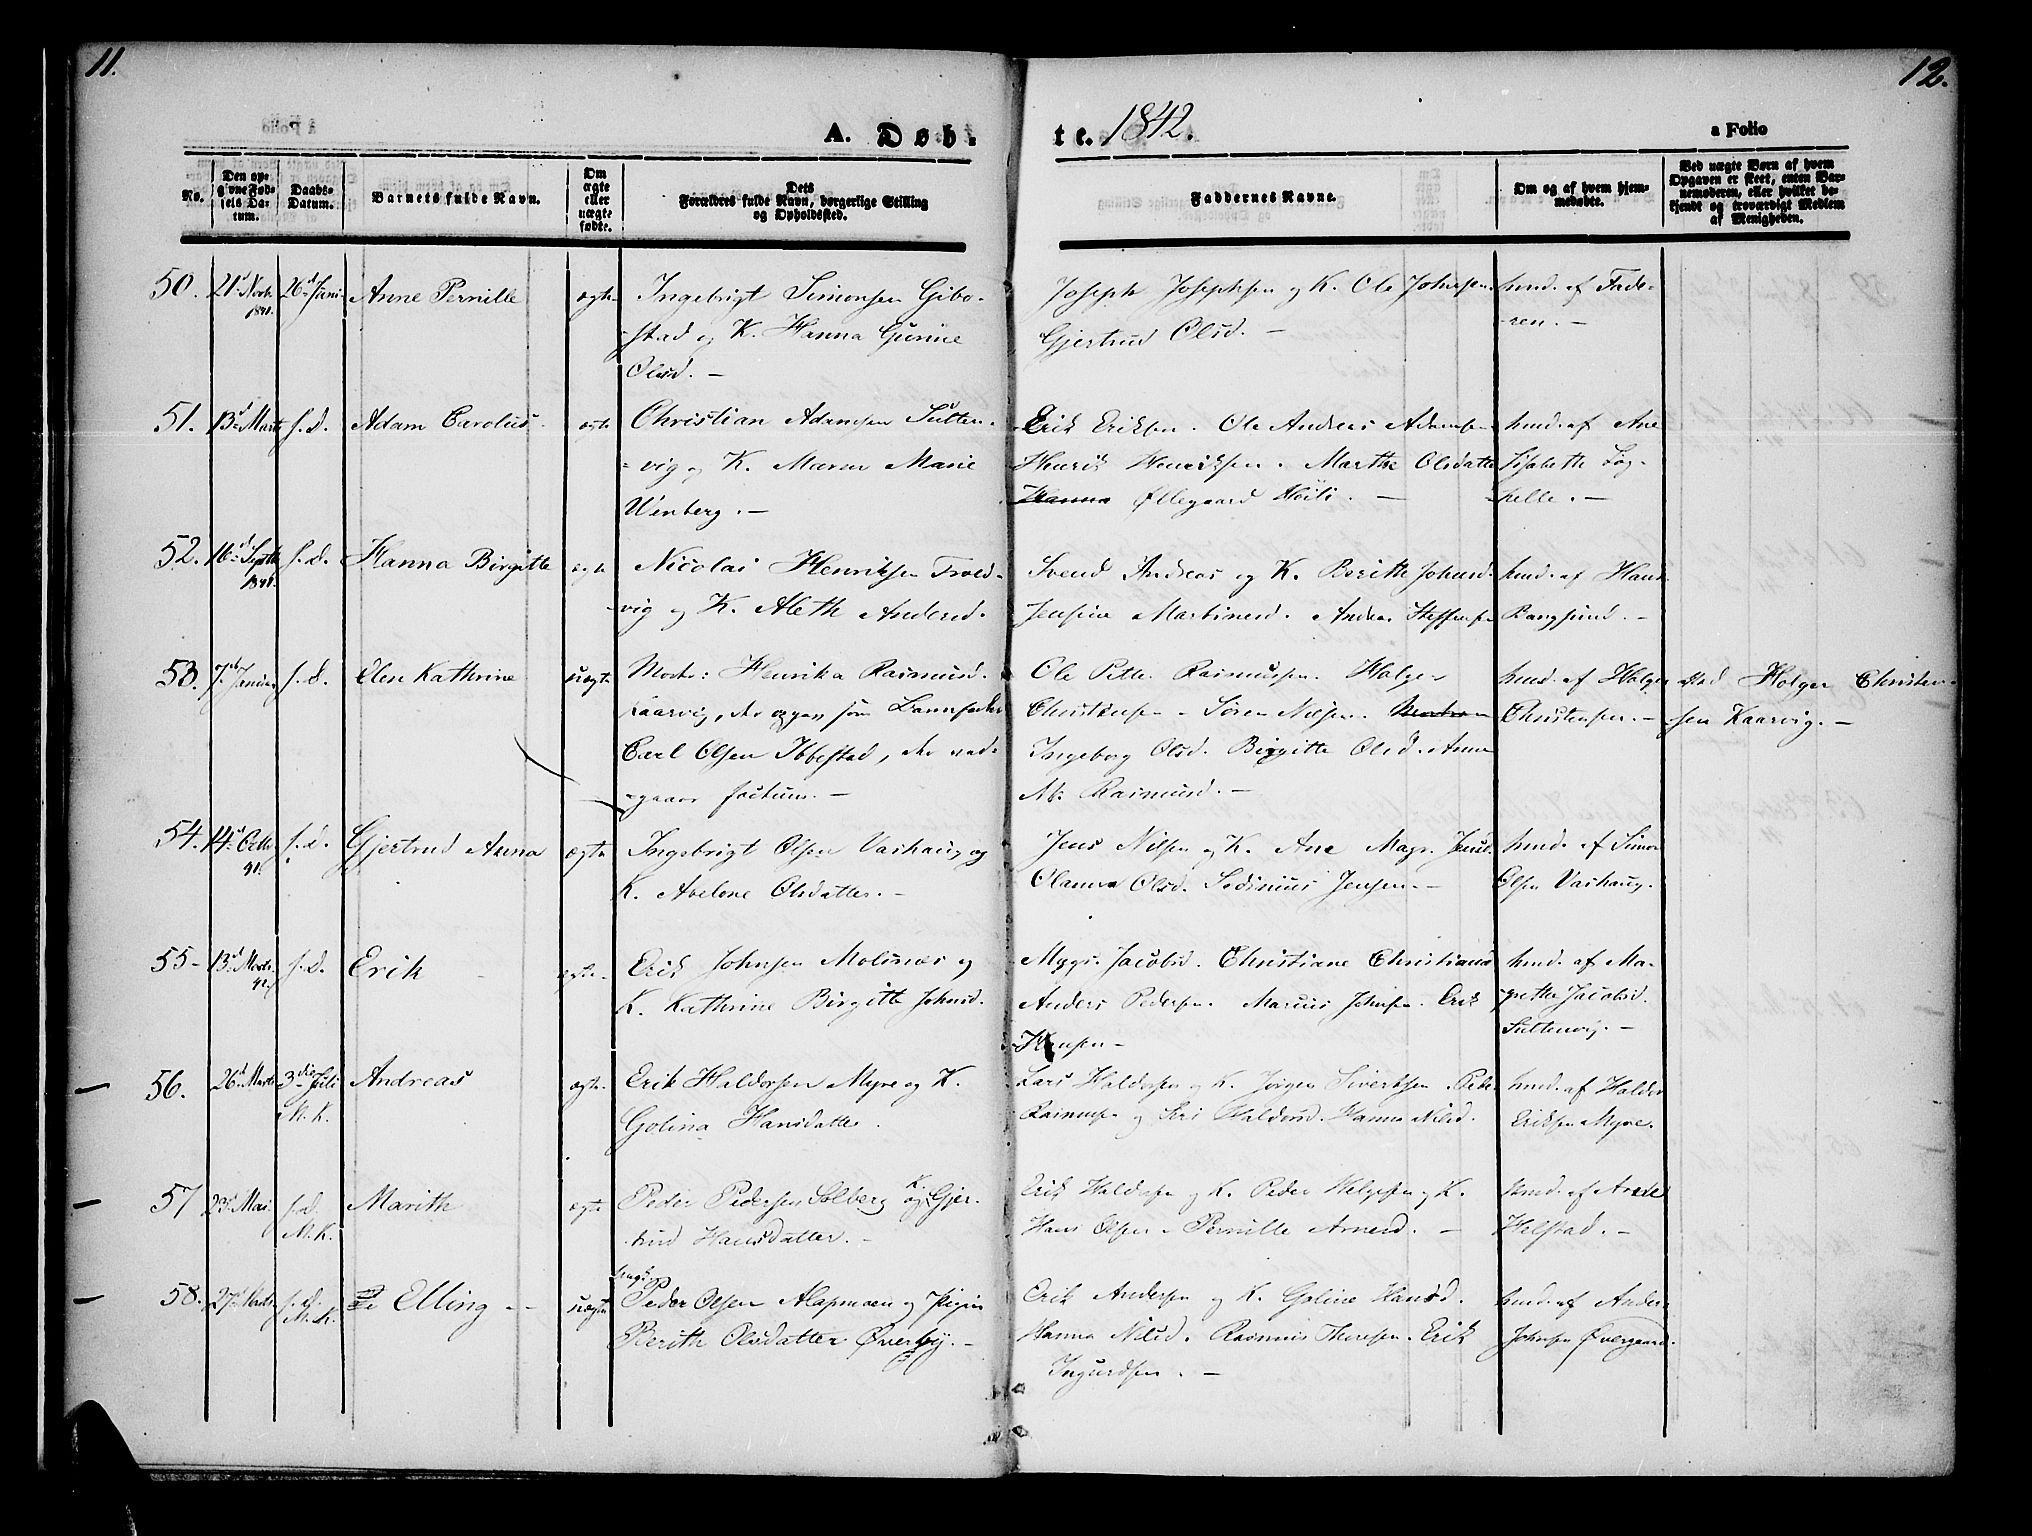 11.
12.
A. Døb-
te. 1842.
a Folio
No.
Den op-
givne Fød-
sels Da-
tum.
Daabs-
Datum.
Barnets fulde Navn.
Om
ægte
eller
uægte
fødte.
Dets
Forældres fulde Navn, borgerlige Stilling
og Opholdssted.
Faddernes Navne.
Om og af hvem hjem-
medøbt.
Ved uægte Børn af hvem
Opgaven er skeet, enten Bar-
nemoderen, eller hvilket be-
kjendt og troværdigt Medlem
af Menigheden.
50. 21d Novb. 1841. 26d Juni Anne Pernille ægte
Ingebrigt Simonsen Gibo-
stad og K. Hanna Gurine
Olsd. –
Joseph Josephsen og K. Ole Johnsen
Gjertrud Olsd. –
hmd. af Fade-
ren. –
51. 13d Marts s. d. Adam Carolus ægte
Christian Adamsen Sulten-
vig og K. Maren Marie
Winberg. –
Erik Eriksen. Ole Andreas Adamsen
Henrik Henriksen. Marthe Olsdatter
Hanna Øllegaard –
hmd. af Ane
Lisabette
52. 16d Septb. 1841. s. d. Hanna Birgitte ægte
Nicolai Henriksen Trold-
vig og K. Aleth Andersd.
Svend Andreas og K. Berith Johnsd.
Jensine Martinesd. Andreas Steffensen
hmd. af Hans
53. 7d Januar s. d. Elen Kathrine uægte
Moder: Henrika Rasmusd.
Kaarvig, der opgav som Barnefader
Carl Olsen Ibbestad, der ved-
gaar factum. –
Ole Petter Rasmussen. Holger
Christensen – Sören Nilsen.
Ingeborg Olsd. Birgitte Olsd. Anne
M. Rasmusd. –
hmd. af Holger
Christensen. –
Holger Christen-
sen Kaarvig. –
54. 14d Octb. 41. s. d. Gjertrud Anna ægte
Ingebrigt Olsen Vashaug og
K. Avelone Olsdatter. –
Jens Nilsen og K. Ane Magr. Jensd.
Olanna Olsd. Jensen. –
hmd. af Simon
Olsen Vashaug.
55 – 13d Marts 42. s. d. Erik – ægte
Erik Johnsen Molunæs og
K. Kathrine Birgitte Johnsd.
Mgr. Jacobsd. Christiane Christiansd
Anders Pedersen. Marcus Johnsen. Erik
Hansen –
hmd. af Ma-
grethe Jacobsd.
Sultenvig. –
56. 26d Marts 3die Juli M. K. Andreas ægte
Erik Haldorsen Myre og K.
Golina Hansdatter.
Lars Haldorsen og K. Jörgen Sivertsen. Peder
Rasmusen og Haldorsd. Hanna Nilsd.
hmd. af Haldor
Eriksen Myre.
57 23d Mai. s. d. M. K. Marith ægte
Peder Pedersen Solberg og K. Gjer-
trud Hansdatter. –
Erik Haldorsen og K. Peder Helgesen og K.
Hans Olsen – Pernille Arnesd. –
hmd. af
–
58. 27d Marts s. d. M. K. Elling – uægte
Ungk.
Peder Olsen Alapmoen og Pigen
Berith Olsdatter Øverby. –
Erik Andersen og K. Goline Hansd.
Hanna Nilsd. Rasmus Thoresen. Erik
Ingvardsen. –
hmd. af Anders
Johnsen Øvergaard.